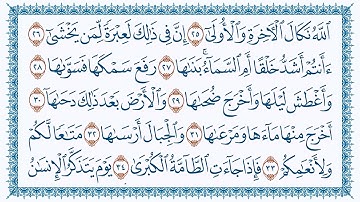 ٱللَّهُ نَكَالَ ٱلْأَخِرَةِ وَٱلْأُولَىٰٓ ٢٥ إِنَّ فِى ذَٰلِكَ لَعِبْرَةً لِّمَن يَخْشَىٰٓ ٢٦
ءَأَنتُمْ أَشَدُّ خَلْقًا أَمِ ٱلسَّمَآءُ ۚ بَنَىٰهَا ٢٧ رَفَعَ سَمْكَهَا فَسَوَّىٰهَا ٢٨
وَأَغْطَشَ لَيْلَهَا وَأَخْرَجَ ضُحَىٰهَا ٢٩ وَٱلْأَرْضَ بَعْدَ ذَٰلِكَ دَحَىٰهَآ ٣٠
أَخْرَجَ مِنْهَا مَآءَهَا وَمَرْعَىٰهَا ٣١ وَٱلْجِبَالَ أَرْسَىٰهَا ٣٢ مَتَٰعًا لَّكُمْ
وَلِأَنْعَٰمِكُمْ ٣٣ فَإِذَا جَآءَتِ ٱلطَّآمَّةُ ٱلْكُبْرَىٰ ٣٤ يَوْمَ يَتَذَكَّرُ ٱلْإِنسَٰنُ